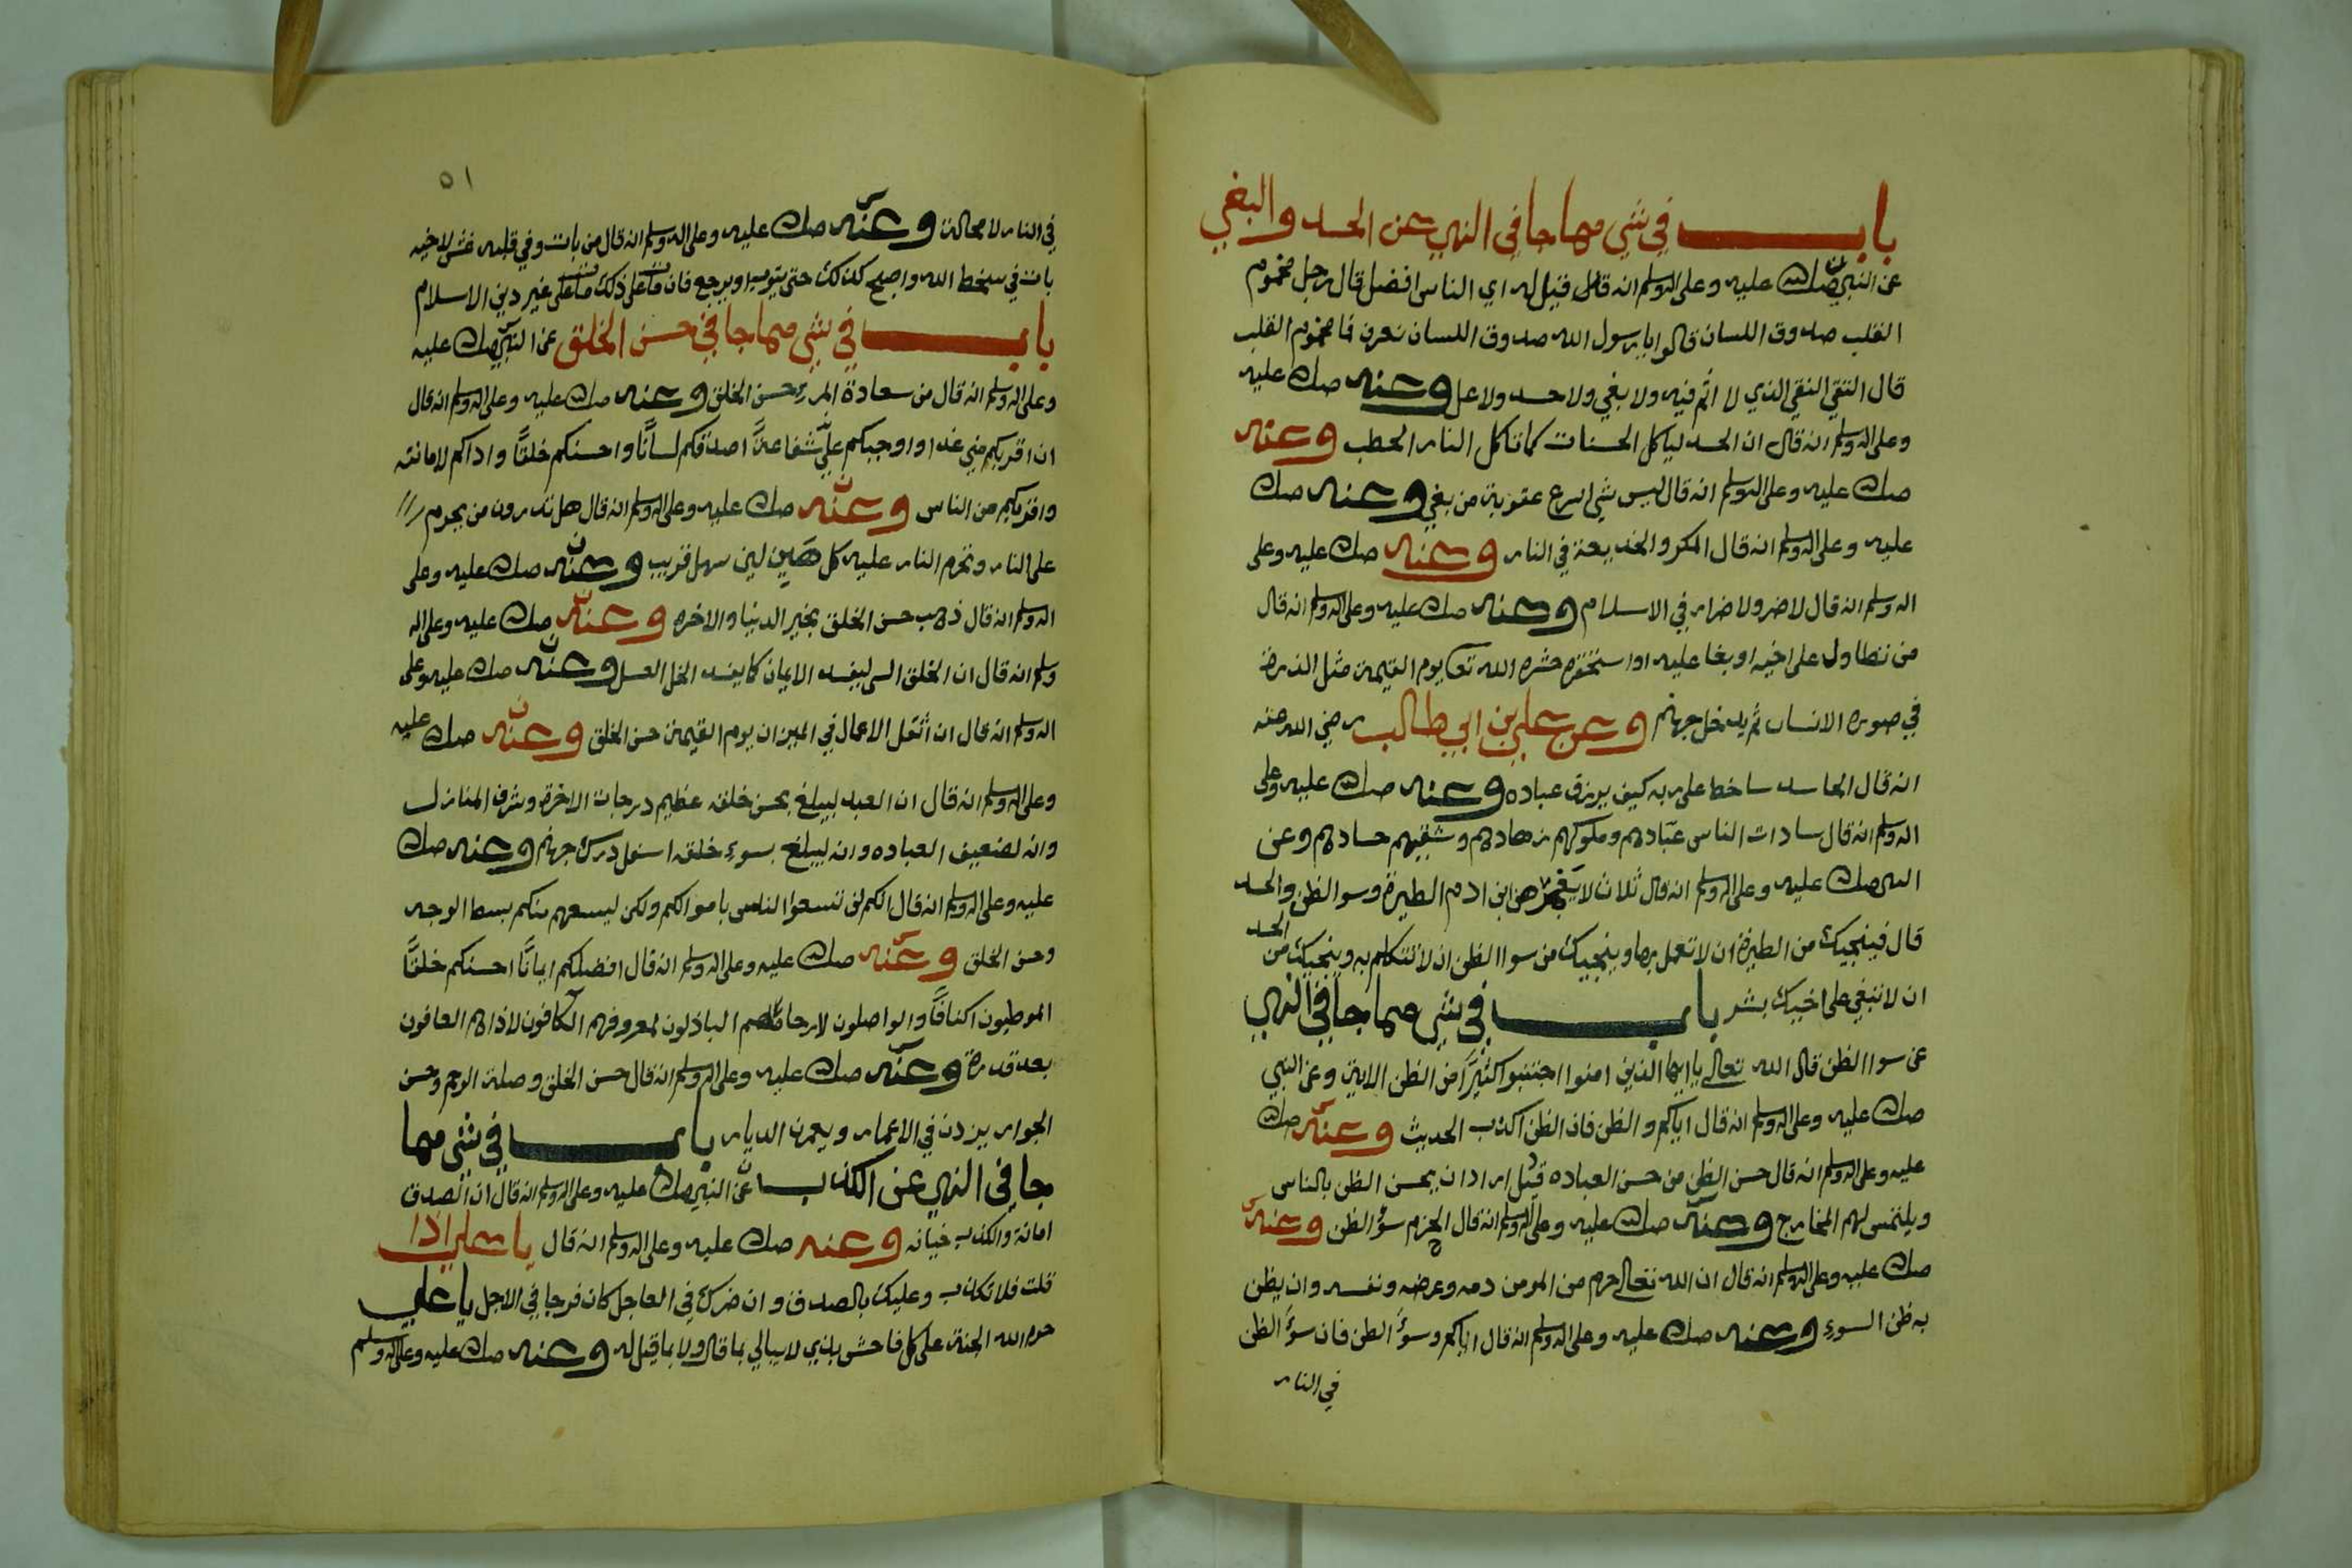 باب في شي مما جا في النهي عن الحسد والبغي
عن النبي صلى الله عليه وعلى اله وسلم انه قال قيل له اي الناس افضل قال رجل مخموم
القلب صدوق اللسان قالوا يا رسول الله صدوق اللسان نعرف فما مخموم القلب
قال التقي النقي الذي لا اثم فيه ولا بغي ولا حسد ولا غل وعنه صلى الله عليه
وعلى اله وسلم انه قال ان الحسد لياكل الحسنات كما تاكل النار الحطب وعنه
صلى الله عليه وعلى اله وسلم انه قال ليس شي اسرع عقوبة من بغي وعنه صلى الله
عليه وعلى اله وسلم انه قال المكر والخديعة في النار وعنه صلى الله عليه وعلى
اله وسلم انه قال لا ضر ولا ضرار في الاسلام وعنه صلى الله عليه وعلى اله وسلم انه قال
من تطاول على اخيه او بغا عليه او استحقره حشره الله تعا يوم القيمة مثل الذرة
في صورة الانسان ثم يدخل جهنم وعن علي بن ابي طالب رضي الله عنه
انه قال الحاسد ساخط على ربه كيف يرزق عباده وعنه صلى الله عليه وعلى
اله وسلم انه قال سادات الناس عبّادهم وملوكهم زهادهم وشقيهم حسادهم وعن
النبي صلى الله عليه وعلى اله وسلم انه قال ثلاث لا ابن ادم الطيرة وسو الظن والحسد
قال فينجيك من الطيرة ان لا تعمل بها وينجيك من سوا الظن ان لا تتكلم به وينجيك من الحسد
ان لا تبغي على اخيك بشر باب في شي مما جا في النهي
عن سوا الظن قال الله تعالى يا ايها الذين امنوا اجتنبوا كثيرًا من الظن الاية وعن النبي
صلى الله عليه وعلى اله وسلم انه قال اياكم والظن فان الظن اكذب الحديث وعنه صلى الله
عليه وعلى اله وسلم انه قال حسن الظن من حسن العباده قيل اراد ان يحسن الظن بالناس
ويلتمس لهم المخارج وعنه صلى الله عليه وعلى اله وسلم انه قال الحزم سؤ الظن وعنه
صلى الله عليه وعلى اله وسلم انه قال ان الله تعالى حرم من المومن دمه وعرضه ونفسه وان يظن
به ظن السوء وعنه صلى الله عليه وعلى اله وسلم انه قال اياكم وسؤ الظن فان سؤ الظن
في النار
٥١
في النار لا محالة وعنه صلى الله عليه وعلى اله وسلم انه قال من بات وفي قلبه غش لاخيه
بات في سخط الله واصبح كذلك حتى يتوب او يرجع فان مات على ذلك مات على غير دين الاسلام
باب في شي مما جا في حسن الخلق عن النبي صلى الله عليه
وعلى اله وسلم انه قال من سعادة المرء حسن الخلق وعنه صلى الله عليه وعلى اله وسلم انه قال
ان اقربكم مني غدا واوجبكم عليّ شفاعةً اصدقكم لسانًا واحسنكم خلقًا واداكم لامانته
واقربكم من الناس وعنه صلى الله عليه وعلى اله وسلم انه قال هل تدرون من يحرم
على النار وتحرم النار عليه كل هين لين سهل قريب وعنه صلى الله عليه وعلى
اله وسلم انه قال ذهب حسن الخلق بخير الدنيا والاخره وعنه صلى الله عليه وعلى اله
وسلم انه قال ان الخلق السي ليفسد الايمان كما يفسد الخل العسل وعنه صلى الله عليه وعلى
اله وسلم انه قال ان اثقل الاعمال في الميزان يوم القيمة حسن الخلق وعنه صلى الله عليه
وعلى اله وسلم انه قال ان العبد ليبلغ بحسن خلقه عظيم درجات الاخرة وشرف المنازل
وانه لضعيف العباده وانه ليبلغ بسوء خلقه اسفل درك جهنم وعنه صلى الله
عليه وعلى اله وسلم انه قال انكم لن تسعوا الناس باموالكم ولكن ليسعهم منكم بسط الوجه
وحسن الخلق وعنه صلى الله عليه وعلى اله وسلم انه قال افضلكم ايمانًا احسنكم خلقًا
الموطيون اكنافًا والواصلون لارحامهم الباذلون لمعروفهم الكافون لاذاهم العافون
بعد قدرة وعنه صلى الله عليه وعلى اله وسلم انه قال حسن الخلق وصلة الرحم وحسن
الجوار يزدن في الاعمار ويعمرن الديار باب في شي مما
جا في النهي عن الكذب عن النبي صلى الله عليه وعلى اله وسلم انه قال ان الصدق
امانة والكذب خيانه وعنه صلى الله عليه وعلى اله وسلم انه قال يا علي اذا
قلت فلا تكذب وعليك بالصدق وان ضرك في العاجل كان فرجا في الاجل يا علي
حرم الله الجنة على كل فاحش بذي لا يبالي بما قال ولا بما قيل له وعنه صلى الله عليه وعلى اله وسلم